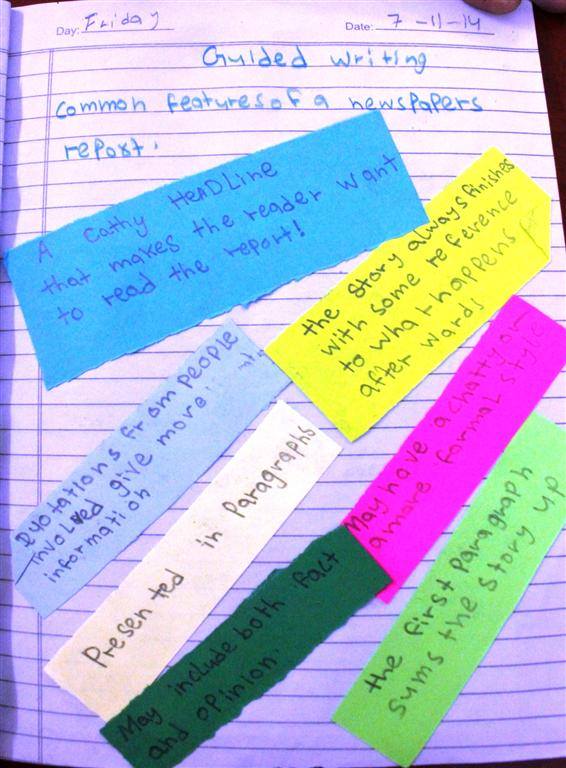 Day: Friday Date: 7-11-14
Guided writing
common features of a newspapers
report.
A Cathy HeADLine
that makes the reader want
to read the report!
the story always finishes
with some reference
to what happens
after wards
Quotations from people
involved give more
information
Presented in Paragraphs
May have a chatty or
a more formal style
May include both fact
and opinion.
the first Paragraph
sums the story up